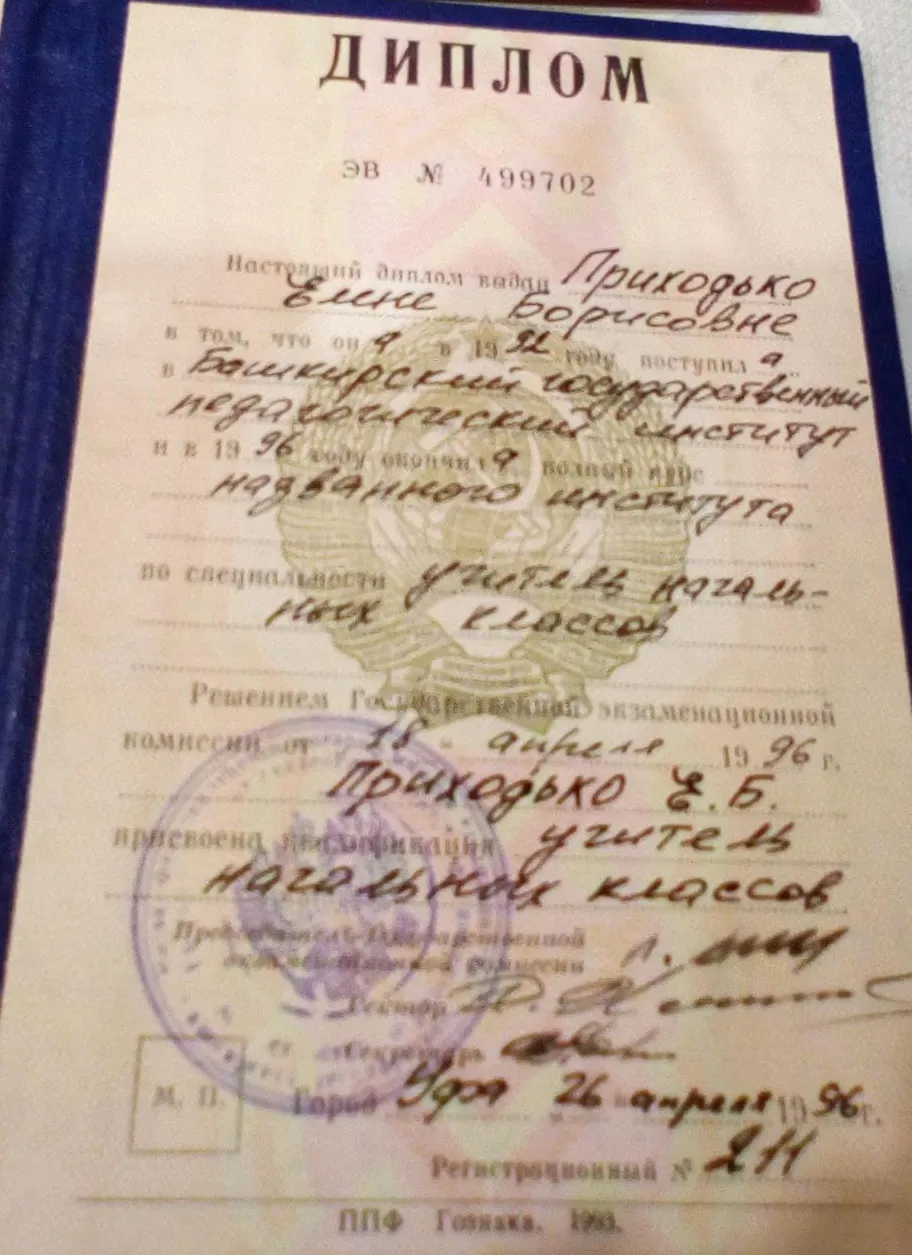 ДИПЛОМ
ЭВ № 499702
Настоящий диплом выдан Приходько
Елене Борисовне
в том, что он а в 19 92 году поступил а
в Башкирский государственный
педагогический институт
и в 19 96 году окончил а полный курс
названного института
по специальности учитель началь-
ных классов
Решением Государственной экзаменационной
комиссии от 18 апреля 19 96 г.
Приходько Е.Б.
присвоена квалификация учитель
начальных классов
Председатель Государственной
экзаменационной комиссии
Ректор
Секретарь
М. П.
Город Уфа 26 апреля 19 96 г.
Регистрационный № 211
ППФ Гознака. 1993.